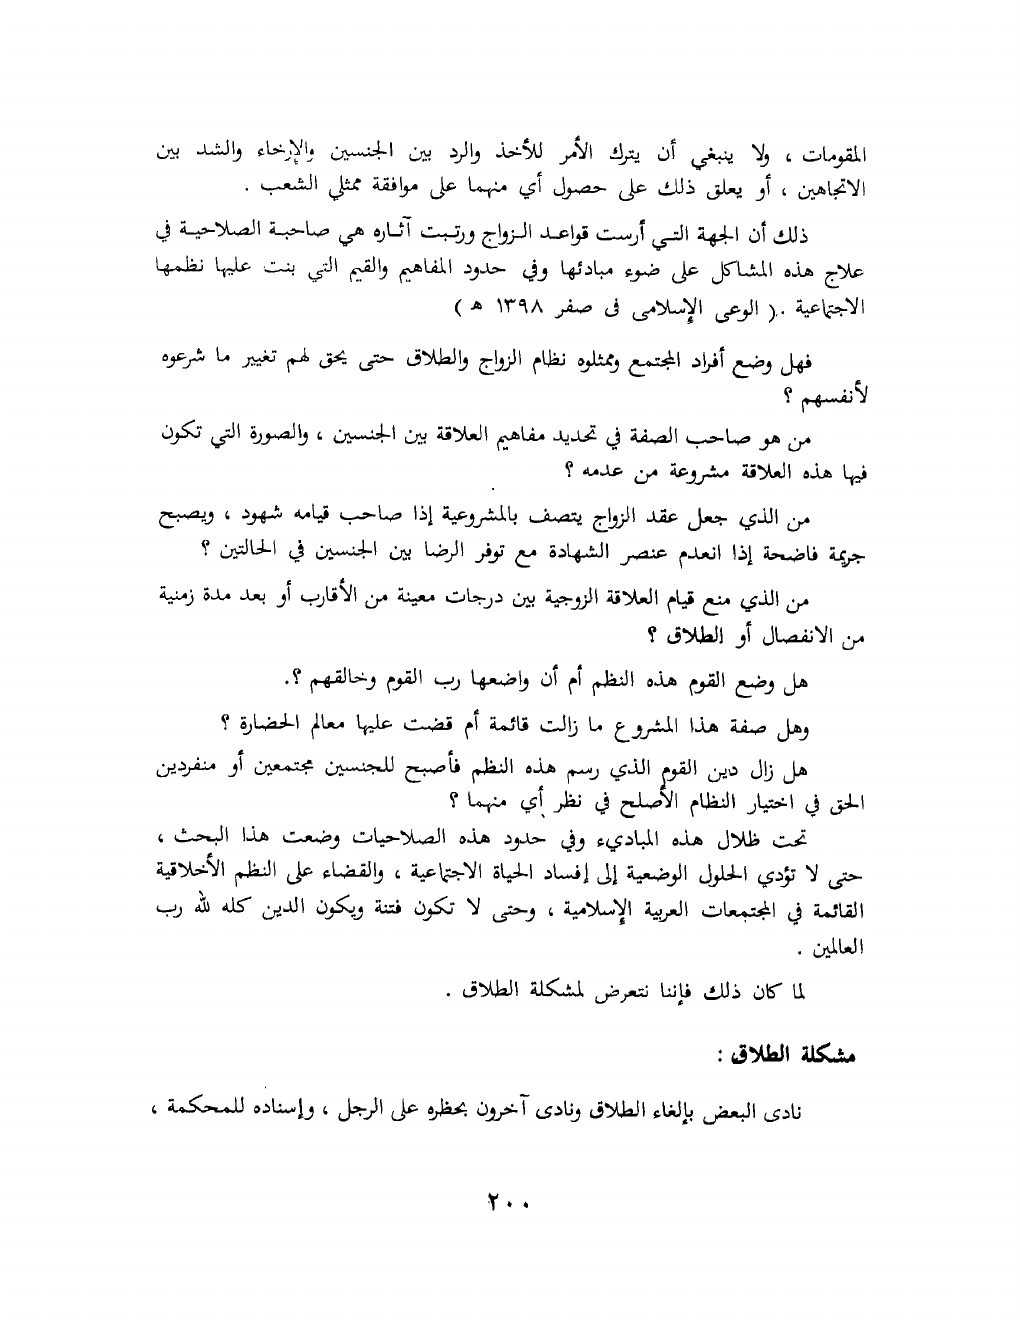 المقومات ، ولا ينبغي أن يترك الأمر للأخذ والرد بين الجنسين والإرخاء والشد بين
الاتجاهين ، أو يعلق ذلك على حصول أي منهما على موافقة ممثلي الشعب .
ذلك أن الجهة التي أرست قواعد الزواج ورتبت آثاره هي صاحبة الصلاحية في
علاج هذه المشاكل على ضوء مبادئها وفي حدود المفاهيم والقيم التي بنت عليها نظمها
الاجتماعية . ( الوعى الإسلامى فى صفر ١٣٩٨ هـ )
فهل وضع أفراد المجتمع وممثلوه نظام الزواج والطلاق حتى يحق لهم تغيير ما شرعوه
لأنفسهم ؟
من هو صاحب الصفة في تحديد مفاهيم العلاقة بين الجنسين ، والصورة التي تكون
فيها هذه العلاقة مشروعة من عدمه ؟
من الذي جعل عقد الزواج يتصف بالمشروعية إذا صاحب قيامه شهود ، ويصبح
جريمة فاضحة إذا انعدم عنصر الشهادة مع توفر الرضا بين الجنسين في الحالتين ؟
من الذي منع قيام العلاقة الزوجية بين درجات معينة من الأقارب أو بعد مدة زمنية
من الانفصال أو الطلاق ؟
هل وضع القوم هذه النظم أم أن واضعها رب القوم وخالقهم ؟.
وهل صفة هذا المشروع ما زالت قائمة أم قضت عليها معالم الحضارة ؟
هل زال دين القوم الذي رسم هذه النظم فأصبح للجنسين مجتمعين أو منفردين
الحق في اختيار النظام الأصلح في نظر أي منهما ؟
تحت ظلال هذه المباديء وفي حدود هذه الصلاحيات وضعت هذا البحث ،
حتى لا تؤدي الحلول الوضعية إلى إفساد الحياة الاجتماعية ، والقضاء على النظم الأخلاقية
القائمة في المجتمعات العربية الإسلامية ، وحتى لا تكون فتنة ويكون الدين كله لله رب
العالمين .
لما كان ذلك فإننا نتعرض لمشكلة الطلاق .
مشكلة الطلاق :
نادى البعض بإلغاء الطلاق ونادى آخرون بحظره على الرجل ، وإسناده للمحكمة ،
٢٠٠